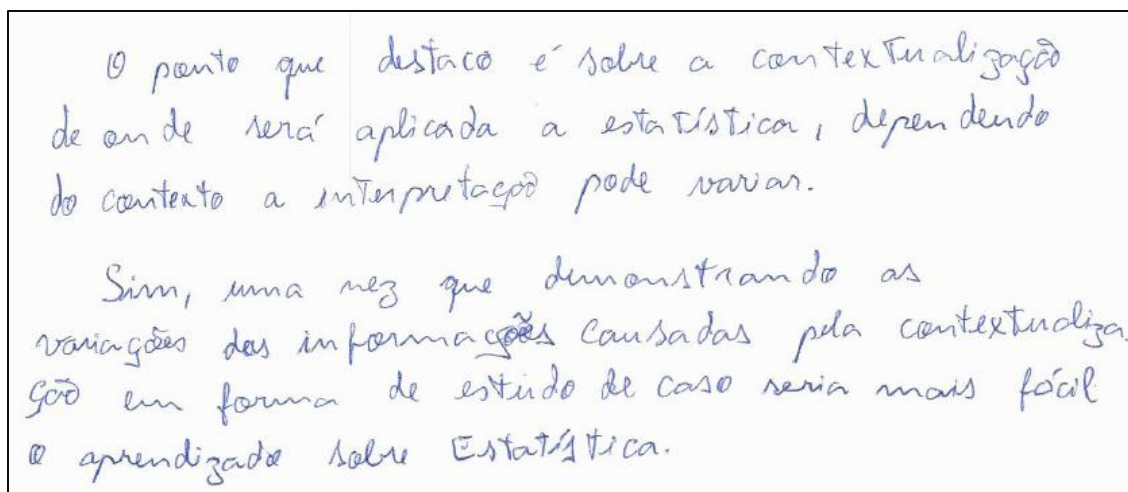 O ponto que destaco é sobre a contextualização
de onde será aplicada a estatística, dependendo
do contexto a interpretação pode variar.
Sim, uma vez que demonstrando as
variações das informações causadas pela contextualiza-
ção em forma de estudo de caso seria mais fácil
o aprendizado sobre Estatística.